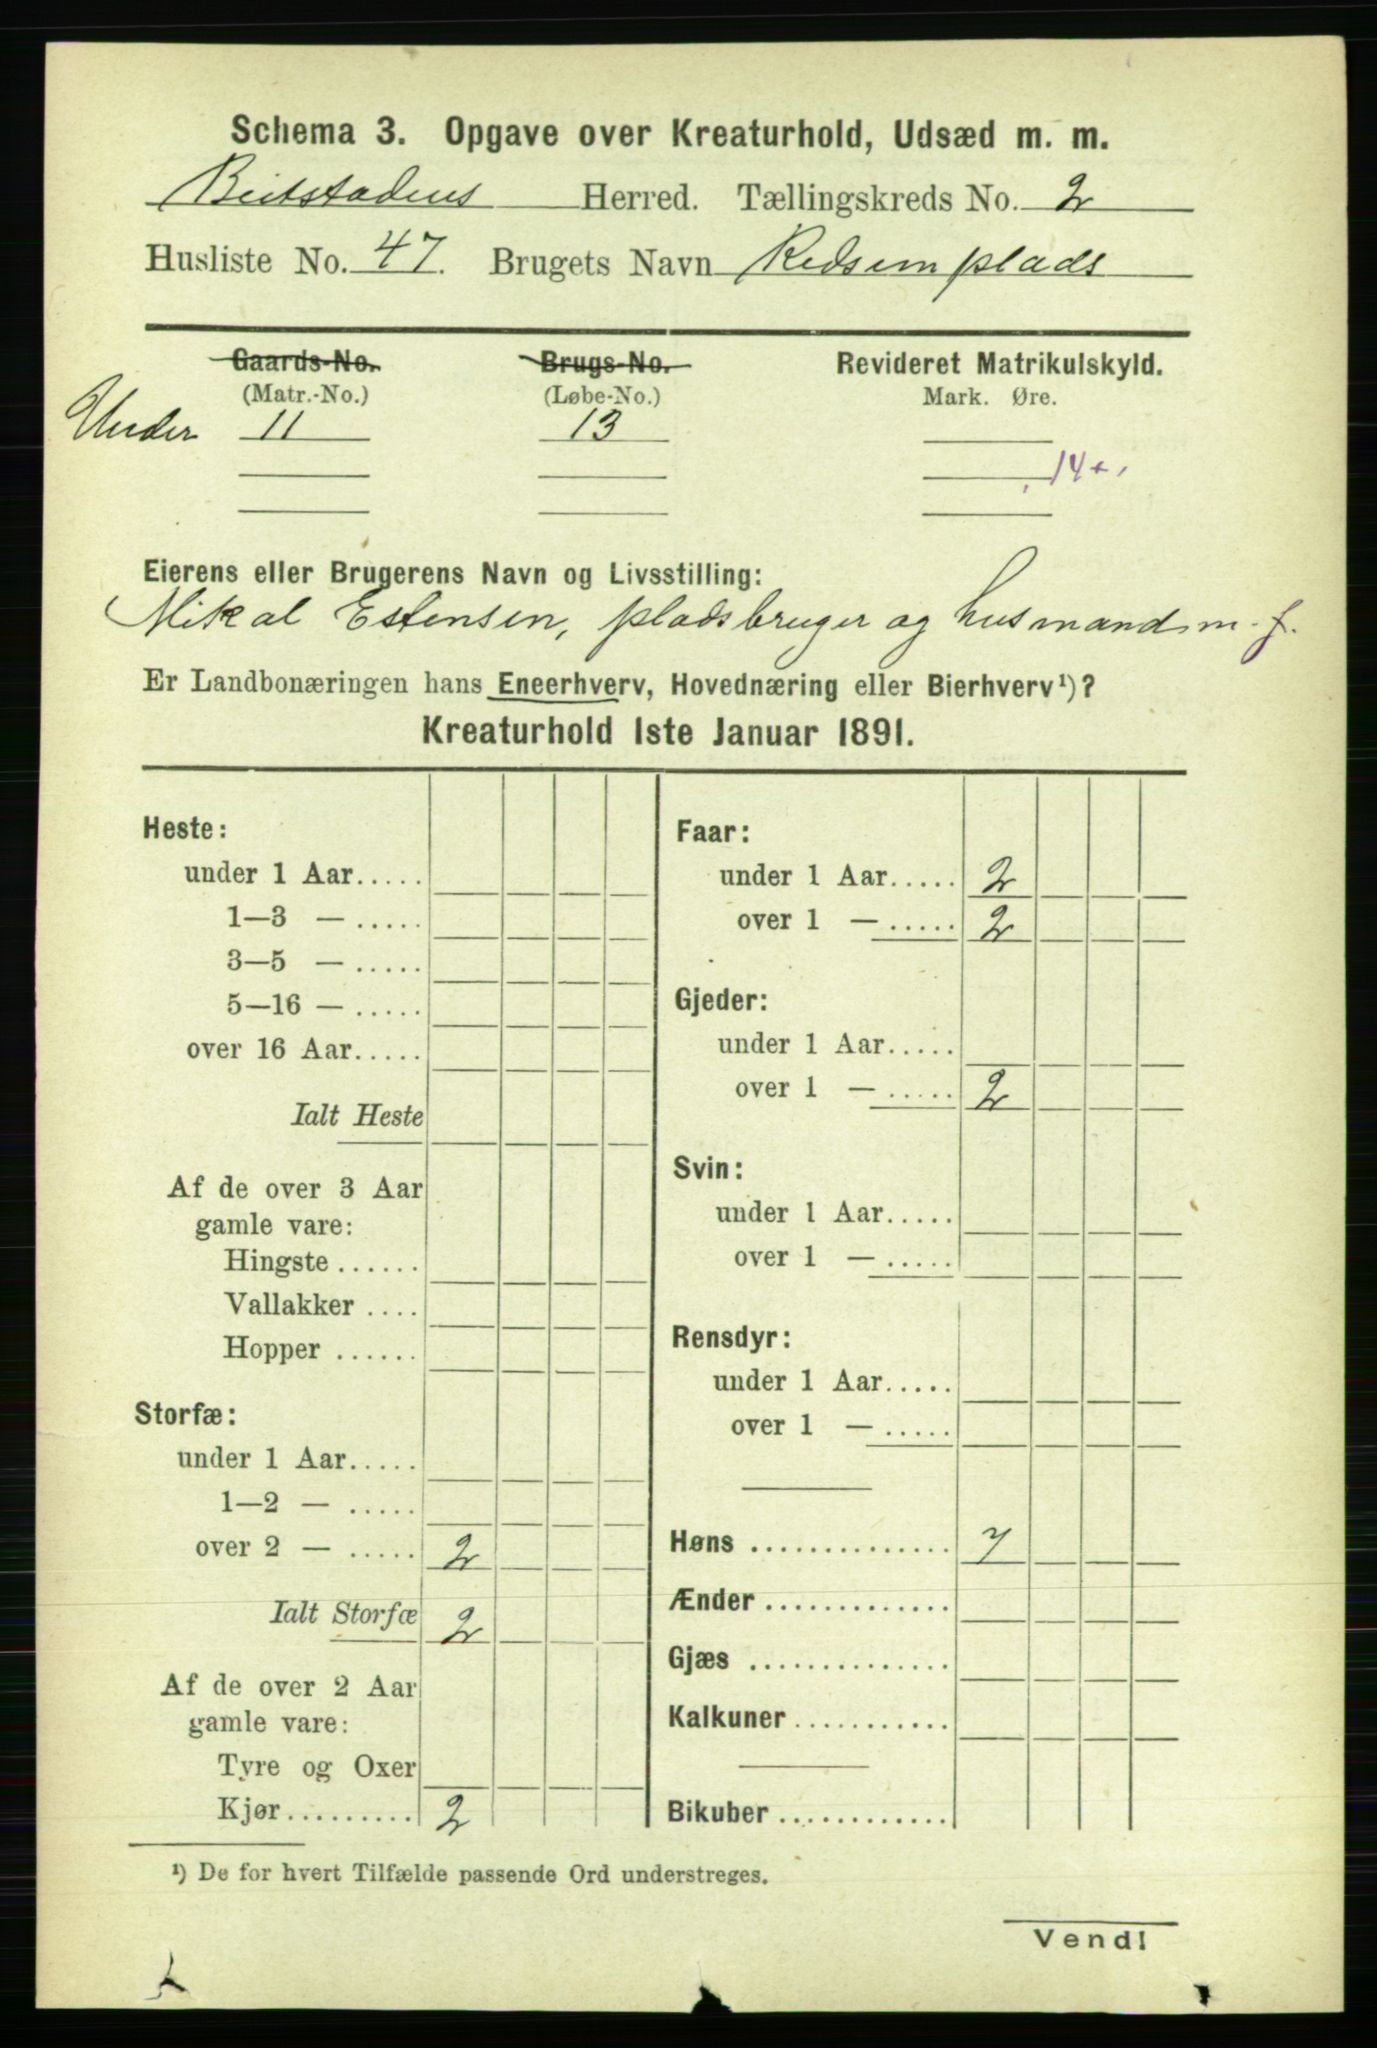 Schema 3. Opgave over Kreaturhold, Udsæd m. m.
Beitstadens Herred. Tællingskreds No. 2
Husliste No. 47. Brugets Navn Redsemplads
Gaards-No. Brugs-No. Revideret Matrikulskyld.
(Matr.-No.) (Løbe-No.) Mark. Øre.
Under 11 13
14+
Eierens eller Brugerens Navn og Livsstilling:
Mikal Estensen, pladsbruger og husmand m. j.
Er Landbonæringen hans Eneerhverv, Hovednæring eller Bierhverv¹)?
Kreaturhold 1ste Januar 1891.
Heste:
under 1 Aar.....
1—3 — .....
3—5 — .....
5—16 — .....
over 16 Aar.....
Ialt Heste
Af de over 3 Aar
gamle vare:
Hingste ......
Vallakker ....
Hopper ......
Storfæ:
under 1 Aar.....
1—2 — .....
over 2 — ..... 2
Ialt Storfæ 2
Af de over 2 Aar
gamle vare:
Tyre og Oxer
Kjør.......... 2
Faar:
under 1 Aar..... 2
over 1 — ..... 2
Gjeder:
under 1 Aar.....
over 1 — ..... 2
Svin:
under 1 Aar.....
over 1 — .....
Rensdyr:
under 1 Aar.....
over 1 — .....
Høns .............. 7
Ænder .............
Gjæs ..............
Kalkuner...........
Bikuber ............
¹) De for hvert Tilfælde passende Ord understreges.
Vend!